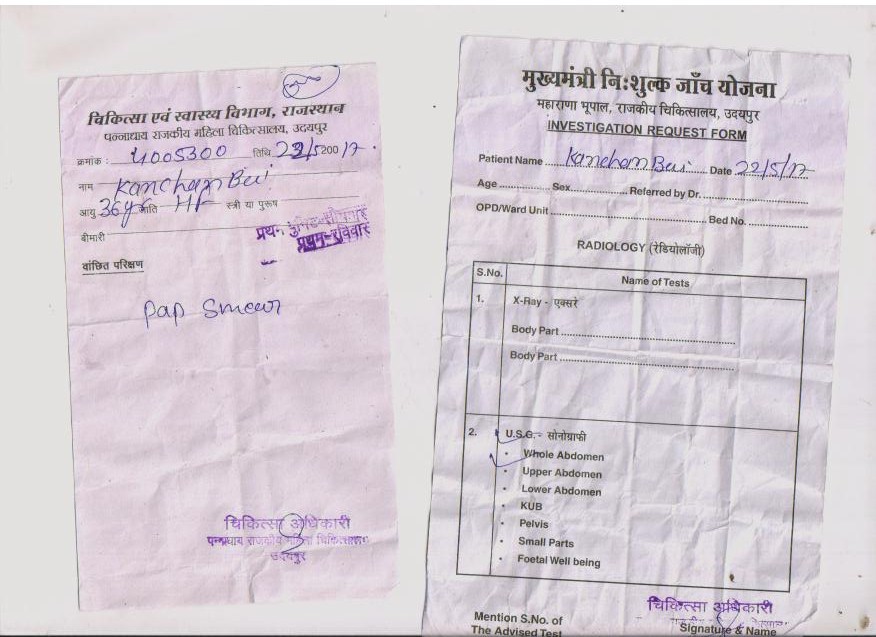 चिकित्सा एवं स्वास्थ्य विभाग, राजस्थान
पन्नाधाय राजकीय महिला चिकित्सालय, उदयपुर
क्रमांक : 4005300 तिथि 22/5200 17.
नाम Kanchan Bui
आयु 36 yr जाति H/F स्त्री या पुरूष
बीमारी
प्रथम-रविवार
वांछित परिक्षण
Pap Smear
चिकित्सा अधिकारी
पन्नाधाय राजकीय महिला चिकित्सालय
उदयपुर
मुख्यमंत्री निःशुल्क जाँच योजना
महाराणा भूपाल, राजकीय चिकित्सालय, उदयपुर
INVESTIGATION REQUEST FORM
Patient Name Kanchan Bui Date 22/5/17
Age Sex Referred by Dr.
OPD/Ward Unit Bed No.
RADIOLOGY (रेडियोलॉजी)
S.No. Name of Tests
1. X-Ray - एक्सरे
Body Part
Body Part
2. U.S.G. - सोनोग्राफी
• Whole Abdomen
• Upper Abdomen
• Lower Abdomen
• KUB
• Pelvis
• Small Parts
• Foetal Well being
चिकित्सा अधिकारी
Mention S.No. of
Signature & Name
The Advised Test